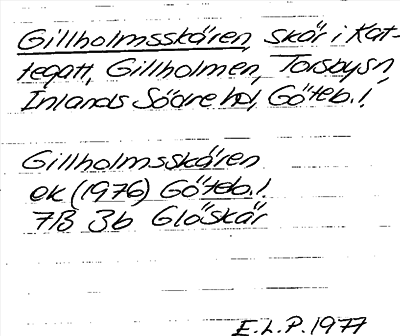 Gillholmsskären, skär i Kat-
tegatt, Gillholmen, Torsbysn,
Inlands Södre hd, Göteb.l.
Gillholmsskären
ek (1976) Göteb.l.
7B 3b Glöskär
E.L.P. 1977